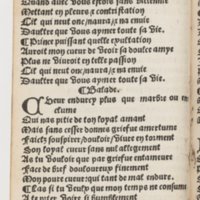 Quant auez vous estoire sans diffenite
Mettant en pleurs & contristation
Cil qui neut one / naura / & na enuie
Daultre que Vous aymer toute sa vie.
¶Prince puissant quelle exultation
Auroit mon cueur de veoir sa doulce amye
Plus ne viuroit en telle passion
Cil qui neut one / naura / & na enuie
Daultre que Vous aymer toute sa vie.
¶Balade.
Cueur endurcy plus que marbre ou en
clume
Qui nas pitie de ton loyal amant
Mais sans cesser donnes griefue amertume
Faictz souspirer / douloir / viure en torment
Ton loyal cueur sans nul allegement
As tu vouloir que par griefue entameure
Face de brief douloureux finement
Mon poure cueur / qui tant de mal endure.
¶Las si tu veulx que mon temps ie consume